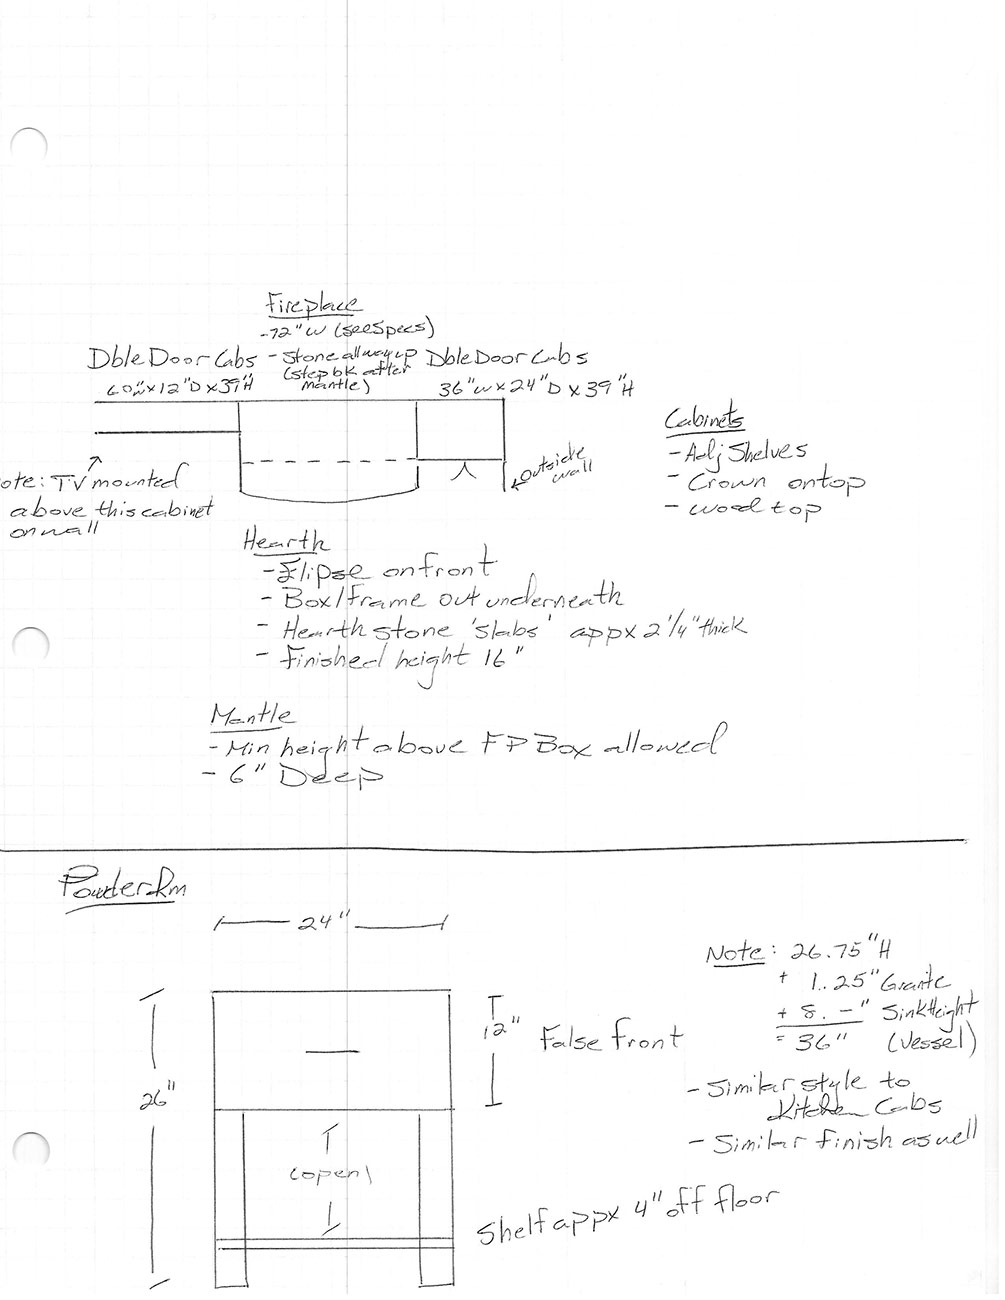 Fireplace
- 72" W (see Specs)
Dble Door Cabs
- Stone all way up
(step bk after
mantle)
Dble Door Cabs
60"W x 12"D x 39"H
36"W x 24"D x 39"H
Cabinets
- Adj Shelves
- Crown on top
- Wood top
ote: TV mounted
above this cabinet
on wall
Outside
wall
Hearth
- Elipse on front
- Box/Frame out underneath
- Hearth stone 'slabs' appx 2 1/4" thick
- Finished height 16"
Mantle
- Min height above FP Box allowed
- 6" Deep
Powder Rm
24"
Note: 26.75"H
+ 1.25" Granite
+ 8.-" Sink Height
= 36" (Vessel)
12"
False front
26"
- Similar style to
Kitchen Cabs
- Similar finish as well
(open)
Shelf appx 4" off floor